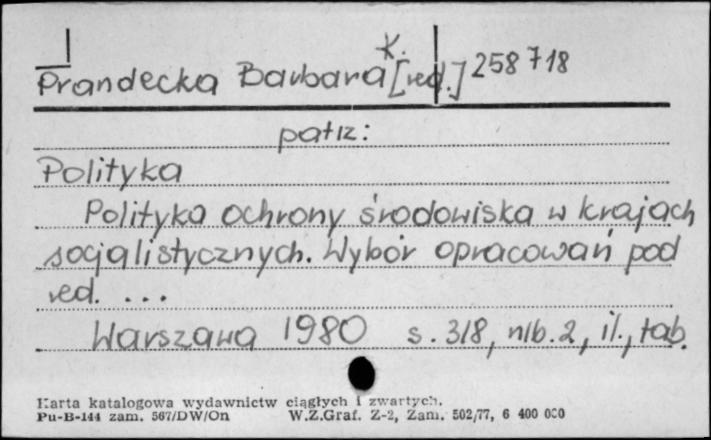 Prandecka Barbara K. [red.] 258718
patrz:
Polityka
Polityka ochrony środowiska w krajach
socjalistycznych. Wybór opracowań pod
red. ...
Warszawa 1980 s. 318, nlb. 2, il., tab.
Karta katalogowa wydawnictw ciągłych i zwartych.
Pu-B-144 zam. 567/DW/On W.Z.Graf. Z-2, Zam. 502/77, 6 400 000